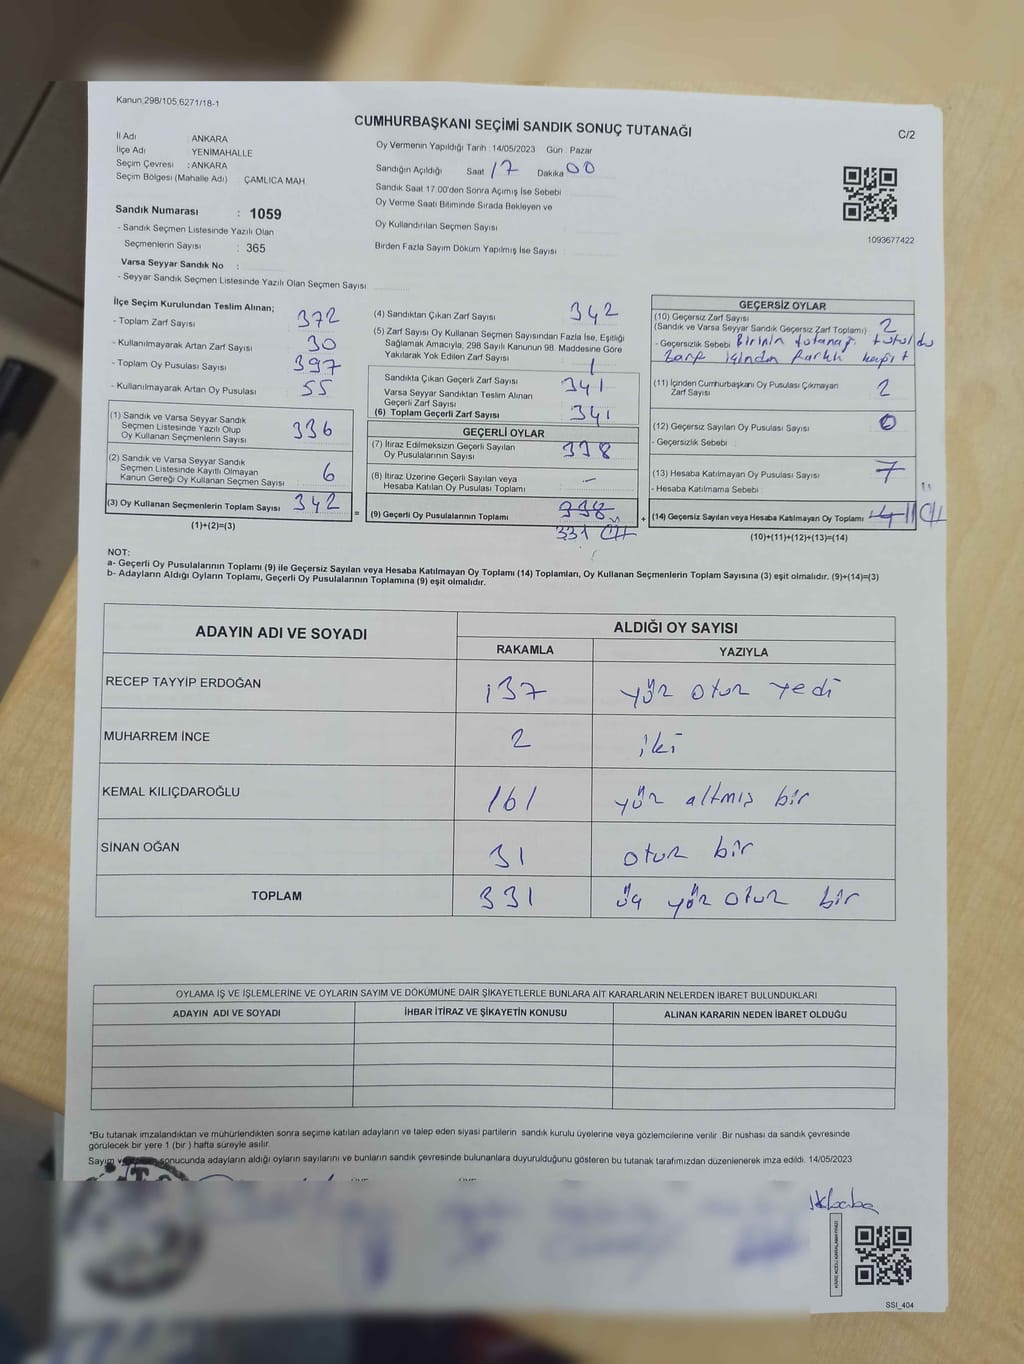 Kanun:298/105;6271/18-1
CUMHURBAŞKANI SEÇİMİ SANDIK SONUÇ TUTANAĞI
C/2
İl Adı : ANKARA
İlçe Adı : YENİMAHALLE
Seçim Çevresi : ANKARA
Seçim Bölgesi (Mahalle Adı) : ÇAMLICA MAH
Oy Vermenin Yapıldığı Tarih : 14/05/2023 Gün : Pazar
Sandığın Açıldığı Saat 17 Dakika 00
Sandık Saat 17:00'den Sonra Açılmış İse Sebebi
Oy Verme Saati Bitiminde Sırada Bekleyen ve
Oy Kullandırılan Seçmen Sayısı
Birden Fazla Sayım Döküm Yapılmış İse Sayısı
1093677422
Sandık Numarası : 1059
- Sandık Seçmen Listesinde Yazılı Olan
Seçmenlerin Sayısı : 365
Varsa Seyyar Sandık No :
- Seyyar Sandık Seçmen Listesinde Yazılı Olan Seçmen Sayısı
İlçe Seçim Kurulundan Teslim Alınan;
- Toplam Zarf Sayısı 372
- Kullanılmayarak Artan Zarf Sayısı 30
- Toplam Oy Pusulası Sayısı 397
- Kullanılmayarak Artan Oy Pusulası 55
(1) Sandık ve Varsa Seyyar Sandık
Seçmen Listesinde Yazılı Olup
Oy Kullanan Seçmenlerin Sayısı 336
(2) Sandık ve Varsa Seyyar Sandık
Seçmen Listesinde Kayıtlı Olmayan
Kanun Gereği Oy Kullanan Seçmen Sayısı 6
(3) Oy Kullanan Seçmenlerin Toplam Sayısı 342
(1)+(2)=(3)
(4) Sandıktan Çıkan Zarf Sayısı 342
(5) Zarf Sayısı Oy Kullanan Seçmen Sayısından Fazla İse, Eşitliği
Sağlamak Amacıyla, 298 Sayılı Kanunun 98. Maddesine Göre
Yakılarak Yok Edilen Zarf Sayısı 1
Sandıkta Çıkan Geçerli Zarf Sayısı 341
Varsa Seyyar Sandıktan Teslim Alınan
Geçerli Zarf Sayısı
(6) Toplam Geçerli Zarf Sayısı 341
GEÇERLİ OYLAR
(7) İtiraz Edilmeksizin Geçerli Sayılan
Oy Pusulalarının Sayısı 338
(8) İtiraz Üzerine Geçerli Sayılan veya
Hesaba Katılan Oy Pusulası Toplamı -
= (9) Geçerli Oy Pusulalarının Toplamı 338
331
GEÇERSİZ OYLAR
(10) Geçersiz Zarf Sayısı
(Sandık ve Varsa Seyyar Sandık Geçersiz Zarf Toplamı) 2
- Geçersizlik Sebebi Birinin tutanağı tutuldu
zarf içinden farklı kağıt
(11) İçinden Cumhurbaşkanı Oy Pusulası Çıkmayan
Zarf Sayısı 2
(12) Geçersiz Sayılan Oy Pusulası Sayısı 0
- Geçersizlik Sebebi :
(13) Hesaba Katılmayan Oy Pusulası Sayısı 7
- Hesaba Katılmama Sebebi :
+ (14) Geçersiz Sayılan veya Hesaba Katılmayan Oy Toplamı 4 11
(10)+(11)+(12)+(13)=(14)
NOT:
a- Geçerli Oy Pusulalarının Toplamı (9) ile Geçersiz Sayılan veya Hesaba Katılmayan Oy Toplamı (14) Toplamları, Oy Kullanan Seçmenlerin Toplam Sayısına (3) eşit olmalıdır. (9)+(14)=(3)
b- Adayların Aldığı Oyların Toplamı, Geçerli Oy Pusulalarının Toplamına (9) eşit olmalıdır.
ADAYIN ADI VE SOYADI
ALDIĞI OY SAYISI
RAKAMLA YAZIYLA
RECEP TAYYİP ERDOĞAN 137 yüz otuz yedi
MUHARREM İNCE 2 iki
KEMAL KILIÇDAROĞLU 161 yüz altmış bir
SİNAN OĞAN 31 otuz bir
TOPLAM 331 üç yüz otuz bir
OYLAMA İŞ VE İŞLEMLERİNE VE OYLARIN SAYIM VE DÖKÜMÜNE DAİR ŞİKAYETLERLE BUNLARA AİT KARARLARIN NELERDEN İBARET BULUNDUKLARI
ADAYIN ADI VE SOYADI İHBAR İTİRAZ VE ŞİKAYETİN KONUSU ALINAN KARARIN NEDEN İBARET OLDUĞU
*Bu tutanak imzalandıktan ve mühürlendikten sonra seçime katılan adayların ve talep eden siyasi partilerin sandık kurulu üyelerine veya gözlemcilerine verilir. Bir nüshası da sandık çevresinde
görülecek bir yere 1 (bir) hafta süreyle asılır.
Sayım sonucunda adayların aldığı oyların sayılarını ve bunların sandık çevresinde bulunanlara duyurulduğunu gösteren bu tutanak tarafımızdan düzenlenerek imza edildi. 14/05/2023
SSI_404